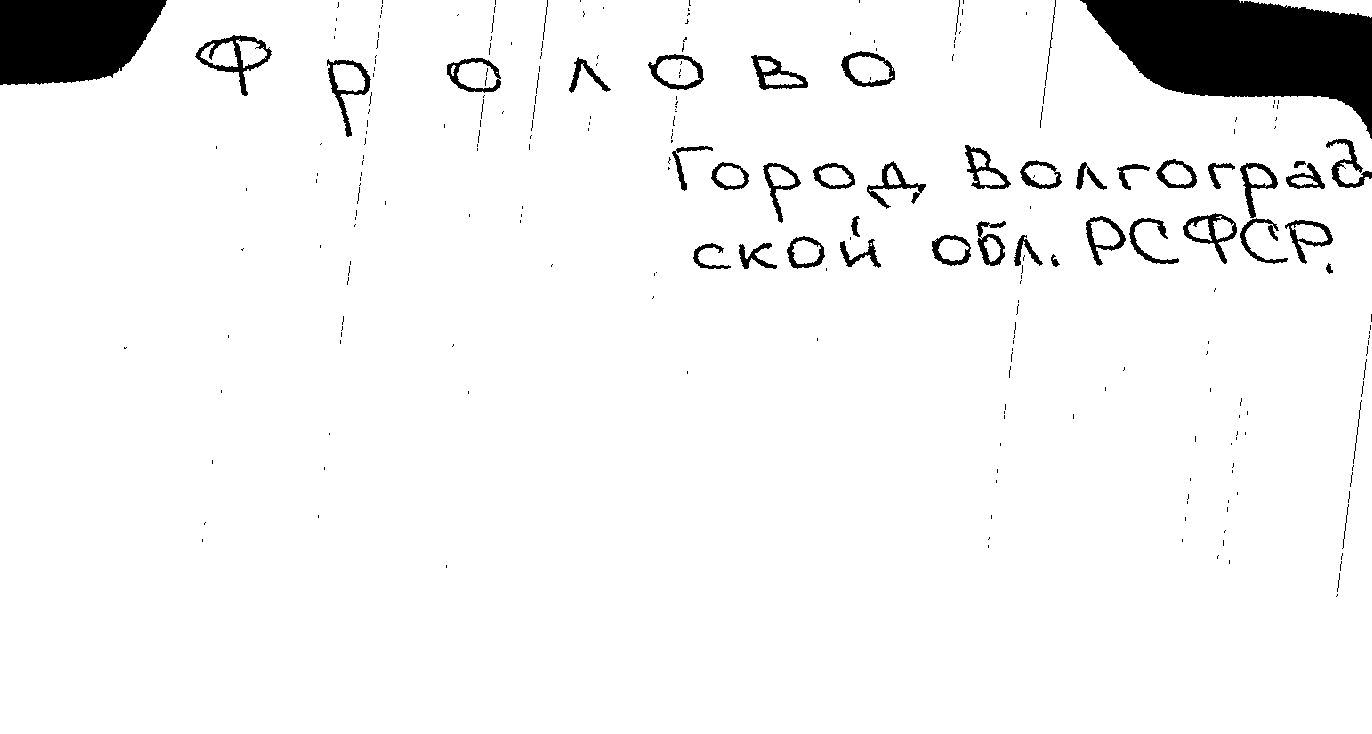 Фролово
Город Волгоград
ской обл. РСФСР.